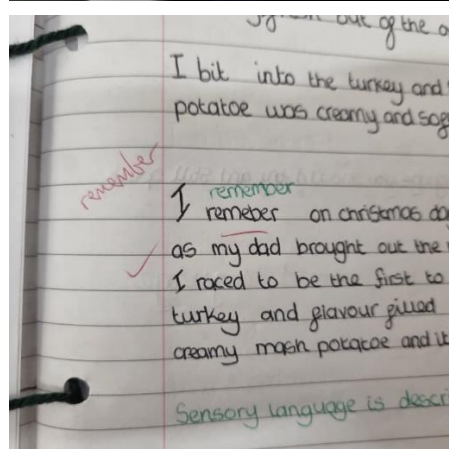 out of the
I bit into the turkey and
potatoe was creamy and
remember
remember
I remeber on christmas
as my dad brought out the
I raced to be the first to
turkey and flavour filled
creamy mash potatoe and it
Sensory language is